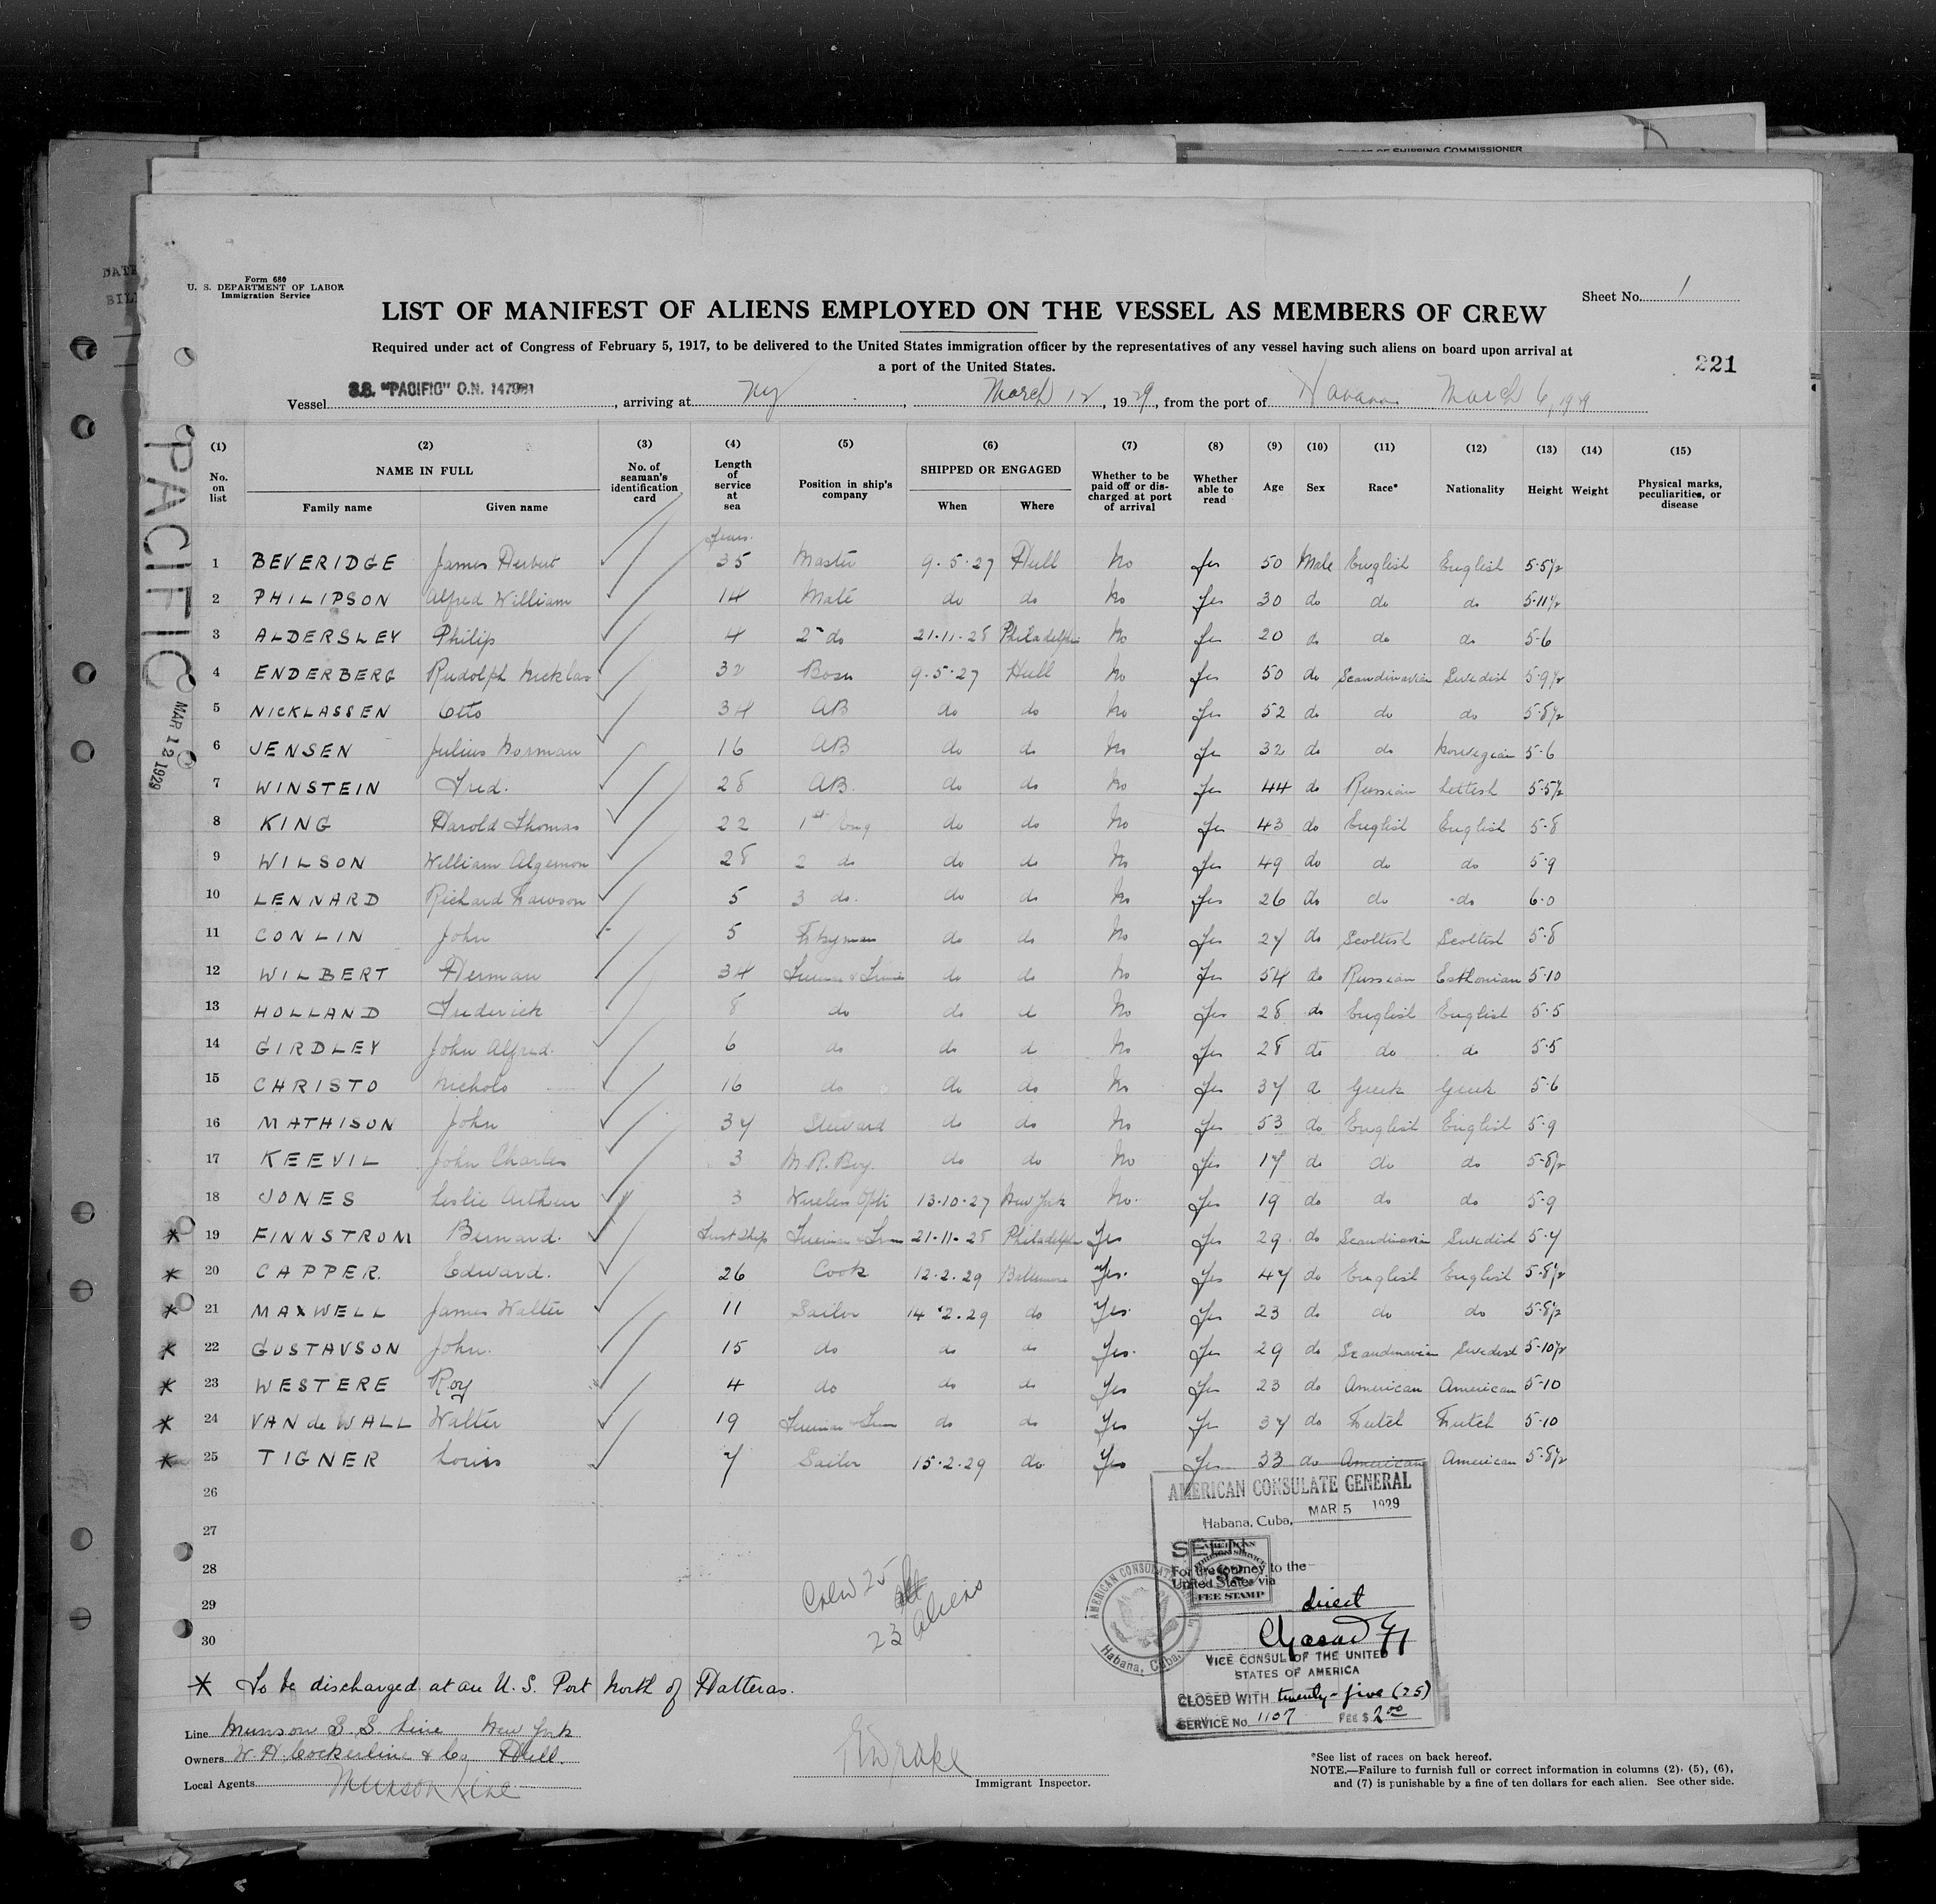 OFFICE OF SHIPPING COMMISSIONER
DATE
BILL
Form 680
U. S. DEPARTMENT OF LABOR
Immigration Service
Sheet No. 1
LIST OF MANIFEST OF ALIENS EMPLOYED ON THE VESSEL AS MEMBERS OF CREW
Required under act of Congress of February 5, 1917, to be delivered to the United States immigration officer by the representatives of any vessel having such aliens on board upon arrival at
a port of the United States.
221
Vessel S.S. "PACIFIC" O.N. 147981, arriving at NY, March 12, 1929, from the port of Havana March 6, 1929
PACIFIC MAR 12 1929
(1) (2) (3) (4) (5) (6) (7) (8) (9) (10) (11) (12) (13) (14) (15)
No. on list NAME IN FULL Family name Given name No. of seaman's identification card Length of service at sea Position in ship's company SHIPPED OR ENGAGED When Where Whether to be paid off or discharged at port of arrival Whether able to read Age Sex Race* Nationality Height Weight Physical marks, peculiarities, or disease
years.
1 BEVERIDGE James Herbert 35 Master 9.5.27 Hull No Yes 50 Male English English 5-5½
2 PHILIPSON Alfred William 14 Mate do do No Yes 30 do do do 5-11½
3 ALDERSLEY Philip 4 2nd do 21.11.28 Philadelphia No Yes 20 do do do 5-6
4 ENDERBERG Rudolph Nicklas 32 Bosn 9.5.27 Hull No Yes 50 do Scandinavian Swedish 5-9½
5 NICKLASSEN Otto 34 AB do do No Yes 52 do do do 5-8½
6 JENSEN Julius Norman 16 AB do do No Yes 32 do do Norwegian 5-6
7 WINSTEIN Fred. 28 AB. do do No Yes 44 do Russian Lettish 5-5½
8 KING Harold Thomas 22 1st Eng do do No Yes 43 do English English 5-8
9 WILSON William Algernon 28 2 do do do No Yes 49 do do do 5-9
10 LENNARD Richard Dawson 5 3 do. do do No Yes 26 do do do 6-0
11 CONLIN John 5 Dkyman do do No Yes 27 do Scottish Scottish 5-8
12 WILBERT Herman 34 Fireman & Trimmer do do No Yes 54 do Russian Esthonian 5-10
13 HOLLAND Frederick 8 do do do No Yes 28 do English English 5-5
14 GIRDLEY John Alfred. 6 do do do No Yes 28 do do do 5-5
15 CHRISTO Nichols 16 do do do No Yes 37 do Greek Greek 5-6
16 MATHISON John 37 Steward do do No Yes 53 do English English 5-9
17 KEEVIL John Charles 3 M.R. Boy. do do No Yes 17 do do do 5-8½
18 JONES Leslie Arthur 3 Wireless Optr 13.10.27 New York No. Yes 19 do do do 5-9
* 19 FINNSTROM Bernard. First Ship Fireman & Trim 21.11.28 Philadelphia Yes Yes 29 do Scandinavian Swedish 5-7
* 20 CAPPER. Edward. 26 Cook 12.2.29 Baltimore Yes. Yes 47 do English English 5-8½
* 21 MAXWELL James Walter 11 Sailor 14.2.29 do Yes. Yes 23 do do do 5-8½
* 22 GUSTAVSON John. 15 do do do Yes. Yes 29 do Scandinavian Swedish 5-10½
* 23 WESTERE Roy 4 do do do Yes Yes 23 do American American 5-10
* 24 VAN de WALL Walter 19 Fireman & Trim do do Yes Yes 37 do Dutch Dutch 5-10
* 25 TIGNER Louis 7 Sailor 15.2.29 do Yes Yes 33 do American American 5-8½
26
27
28
29
30
Crew 25 all
23 aliens
AMERICAN CONSULATE GENERAL
Habana, Cuba, MAR 5 1929
SEEN
For the journey to the
United States via
direct
AMERICAN FOREIGN SERVICE $2 FEE STAMP
AMERICAN CONSULATE GENERAL Habana, Cuba.
VICE CONSUL OF THE UNITED
STATES OF AMERICA
CLOSED WITH twenty-five (25)
SERVICE No. 1107 FEE $ 2.00
* To be discharged at an U. S. Port North of Hatteras.
Line Munson S. S. Line New York
Owners W. H. Cockerline & Co Hull.
Local Agents Munson Line
Drake
Immigrant Inspector.
*See list of races on back hereof.
NOTE.—Failure to furnish full or correct information in columns (2), (5), (6),
and (7) is punishable by a fine of ten dollars for each alien. See other side.